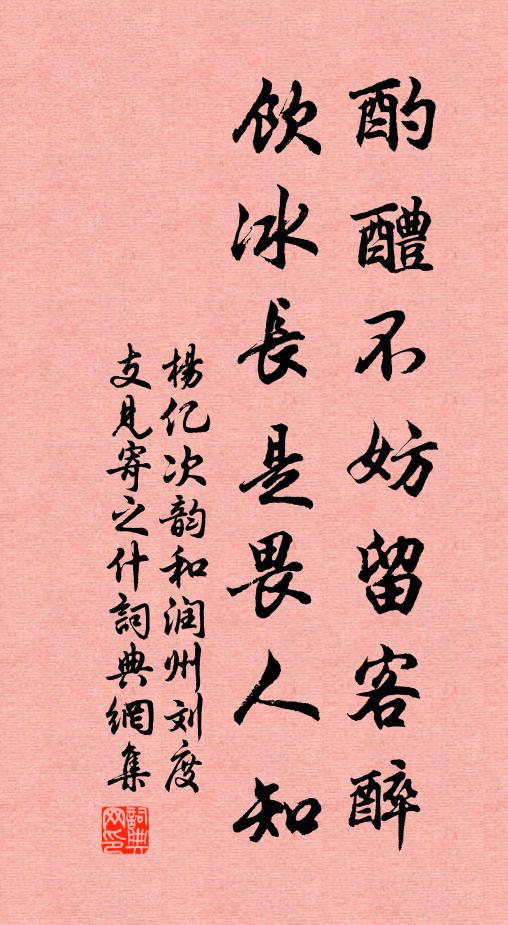 酌醴不妨留客醉
飲冰長是畏人知
楊亿次韵和润州刘度
支見寄之什詞典網集
詞典网印